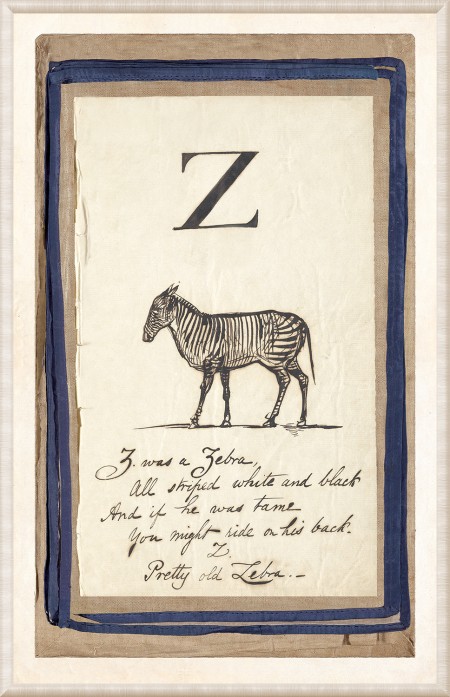 Z
Z. was a Zebra,
All striped white and black
And if he was tame
You might ride on his back.
Z.
Pretty old Zebra.–